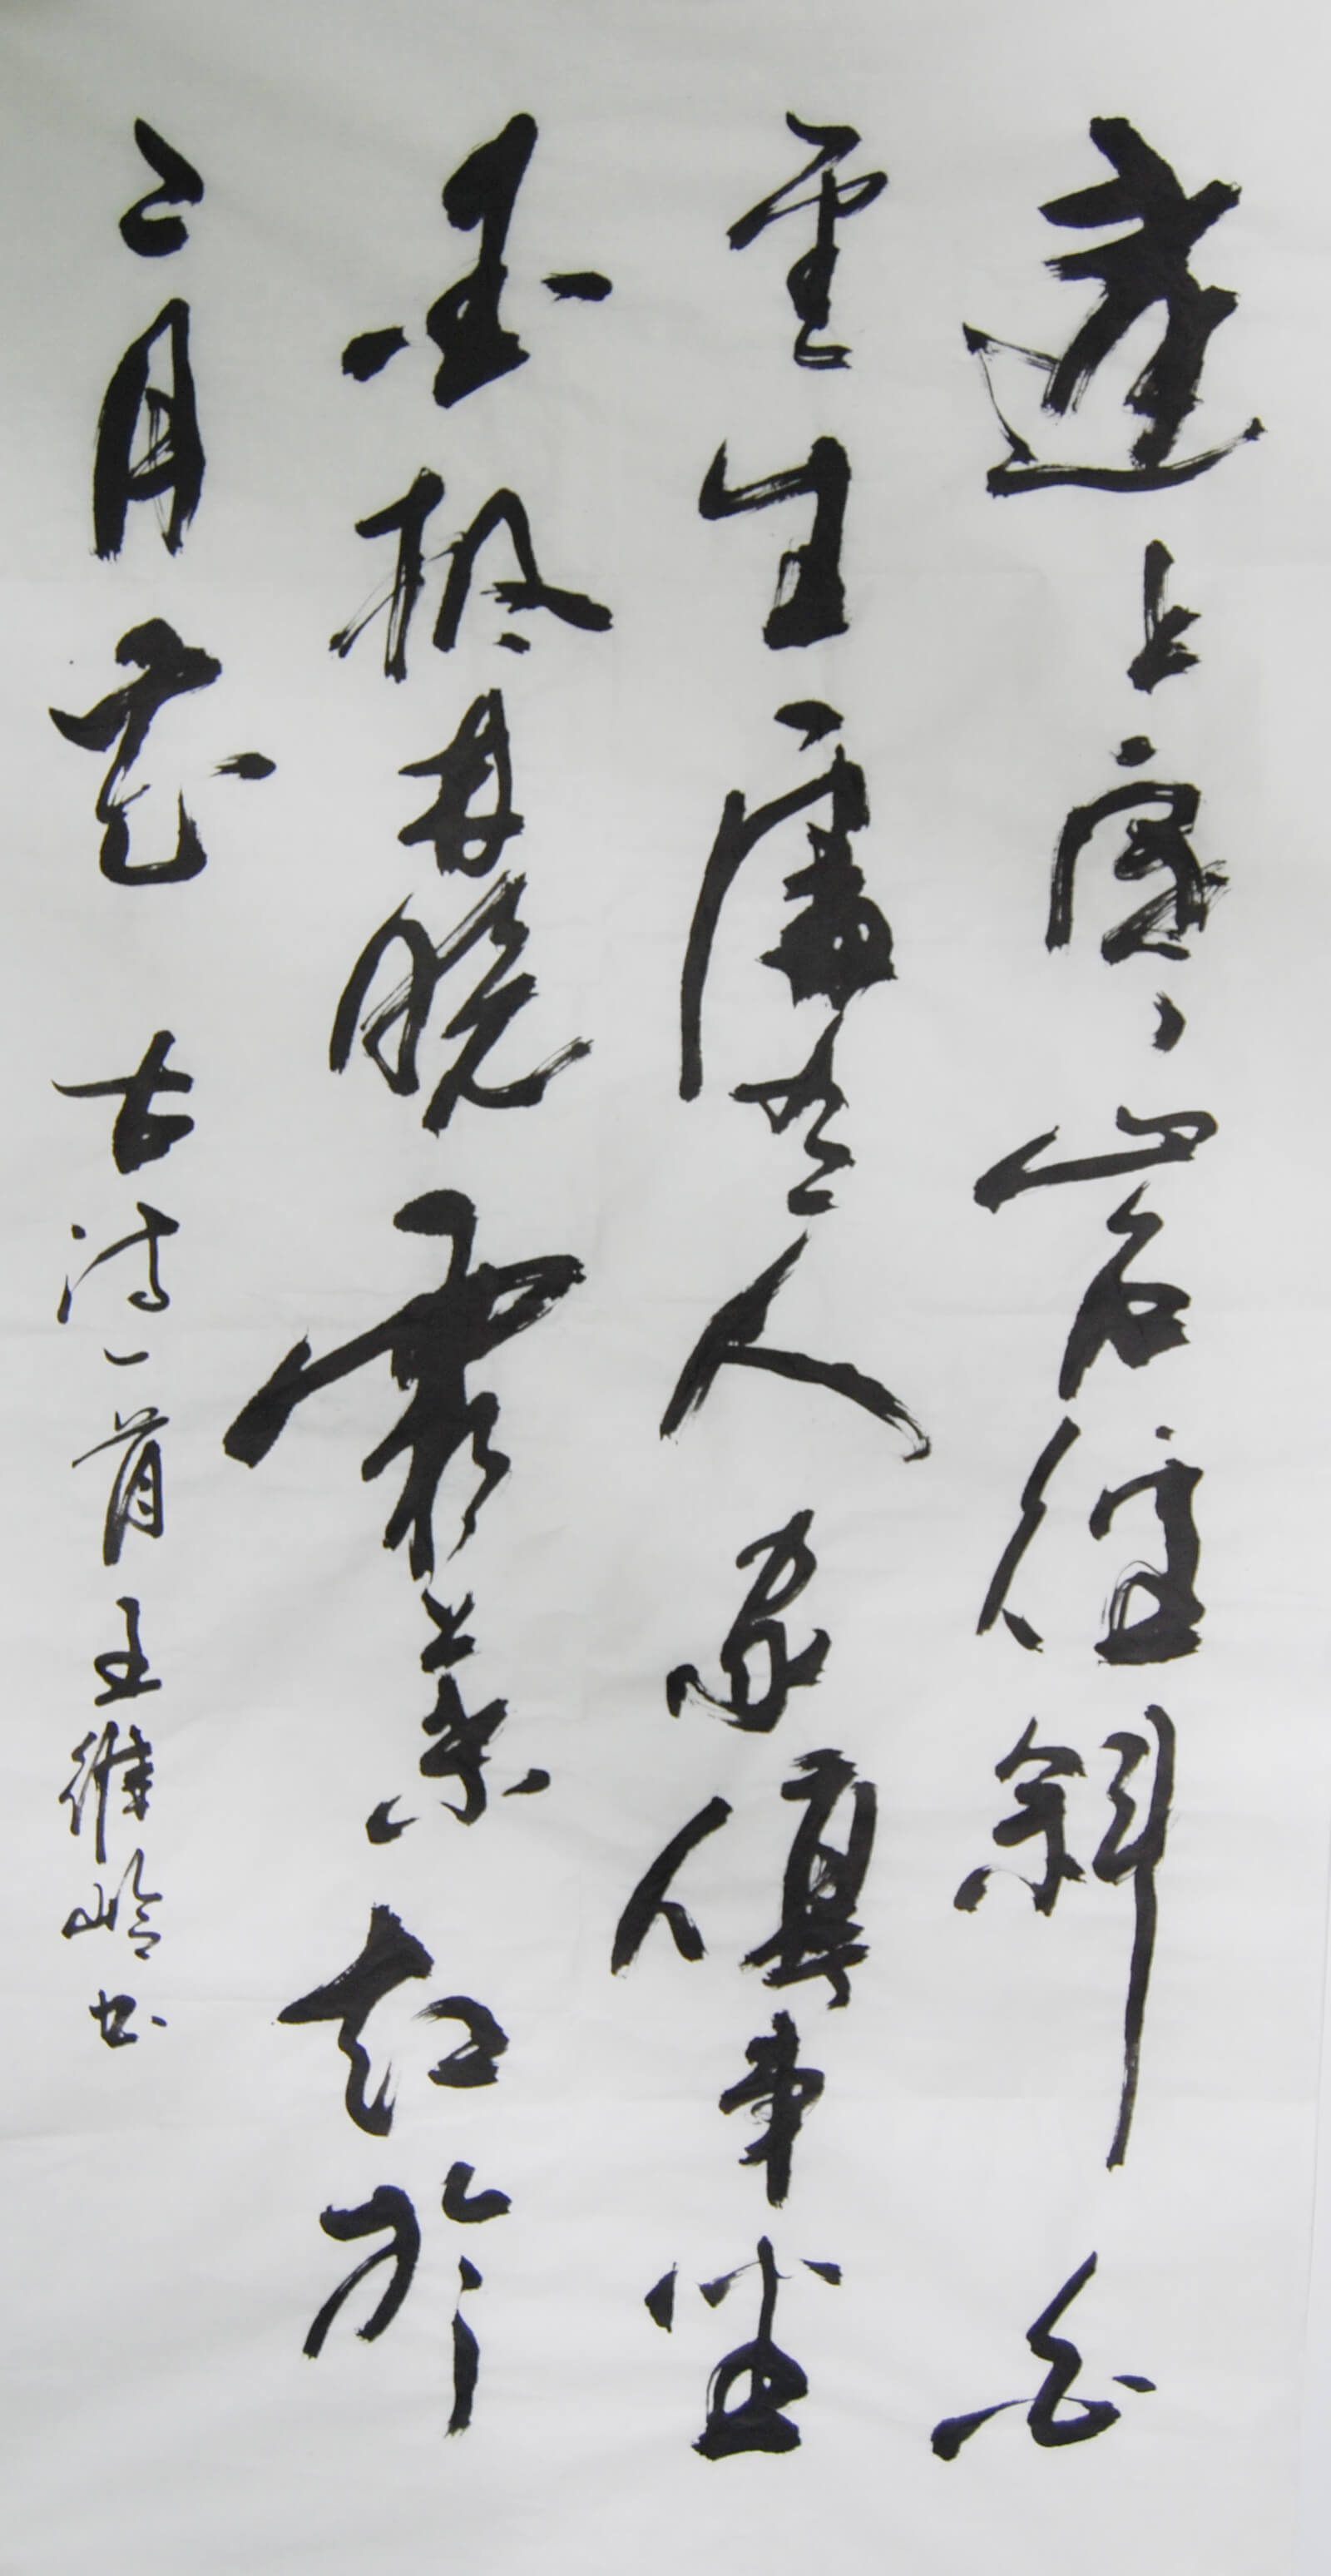 遠上寒山石徑斜白
雲生處有人家停車坐
愛楓林晚霜葉紅於
二月花 古詩一首 王維岭书